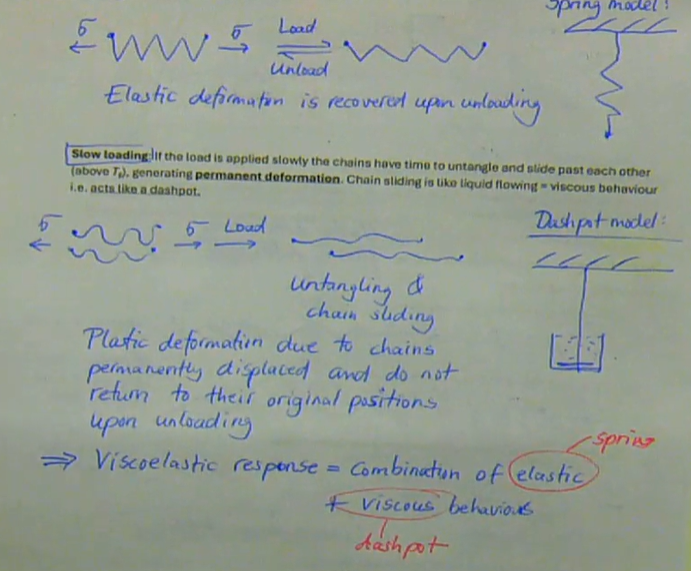 Spring model:
σ σ Load
Unload
Elastic deformation is recovered upon unloading
Slow loading: If the load is applied slowly the chains have time to untangle and slide past each other
(above Tg), generating permanent deformation. Chain sliding is like liquid flowing = viscous behaviour
i.e. acts like a dashpot.
σ σ Load
Dashpot model:
Untangling &
chain sliding
Plastic deformation due to chains
permanently displaced and do not
return to their original positions
upon unloading
spring
⇒ Viscoelastic response = Combination of elastic
+ viscous behaviours
dashpot